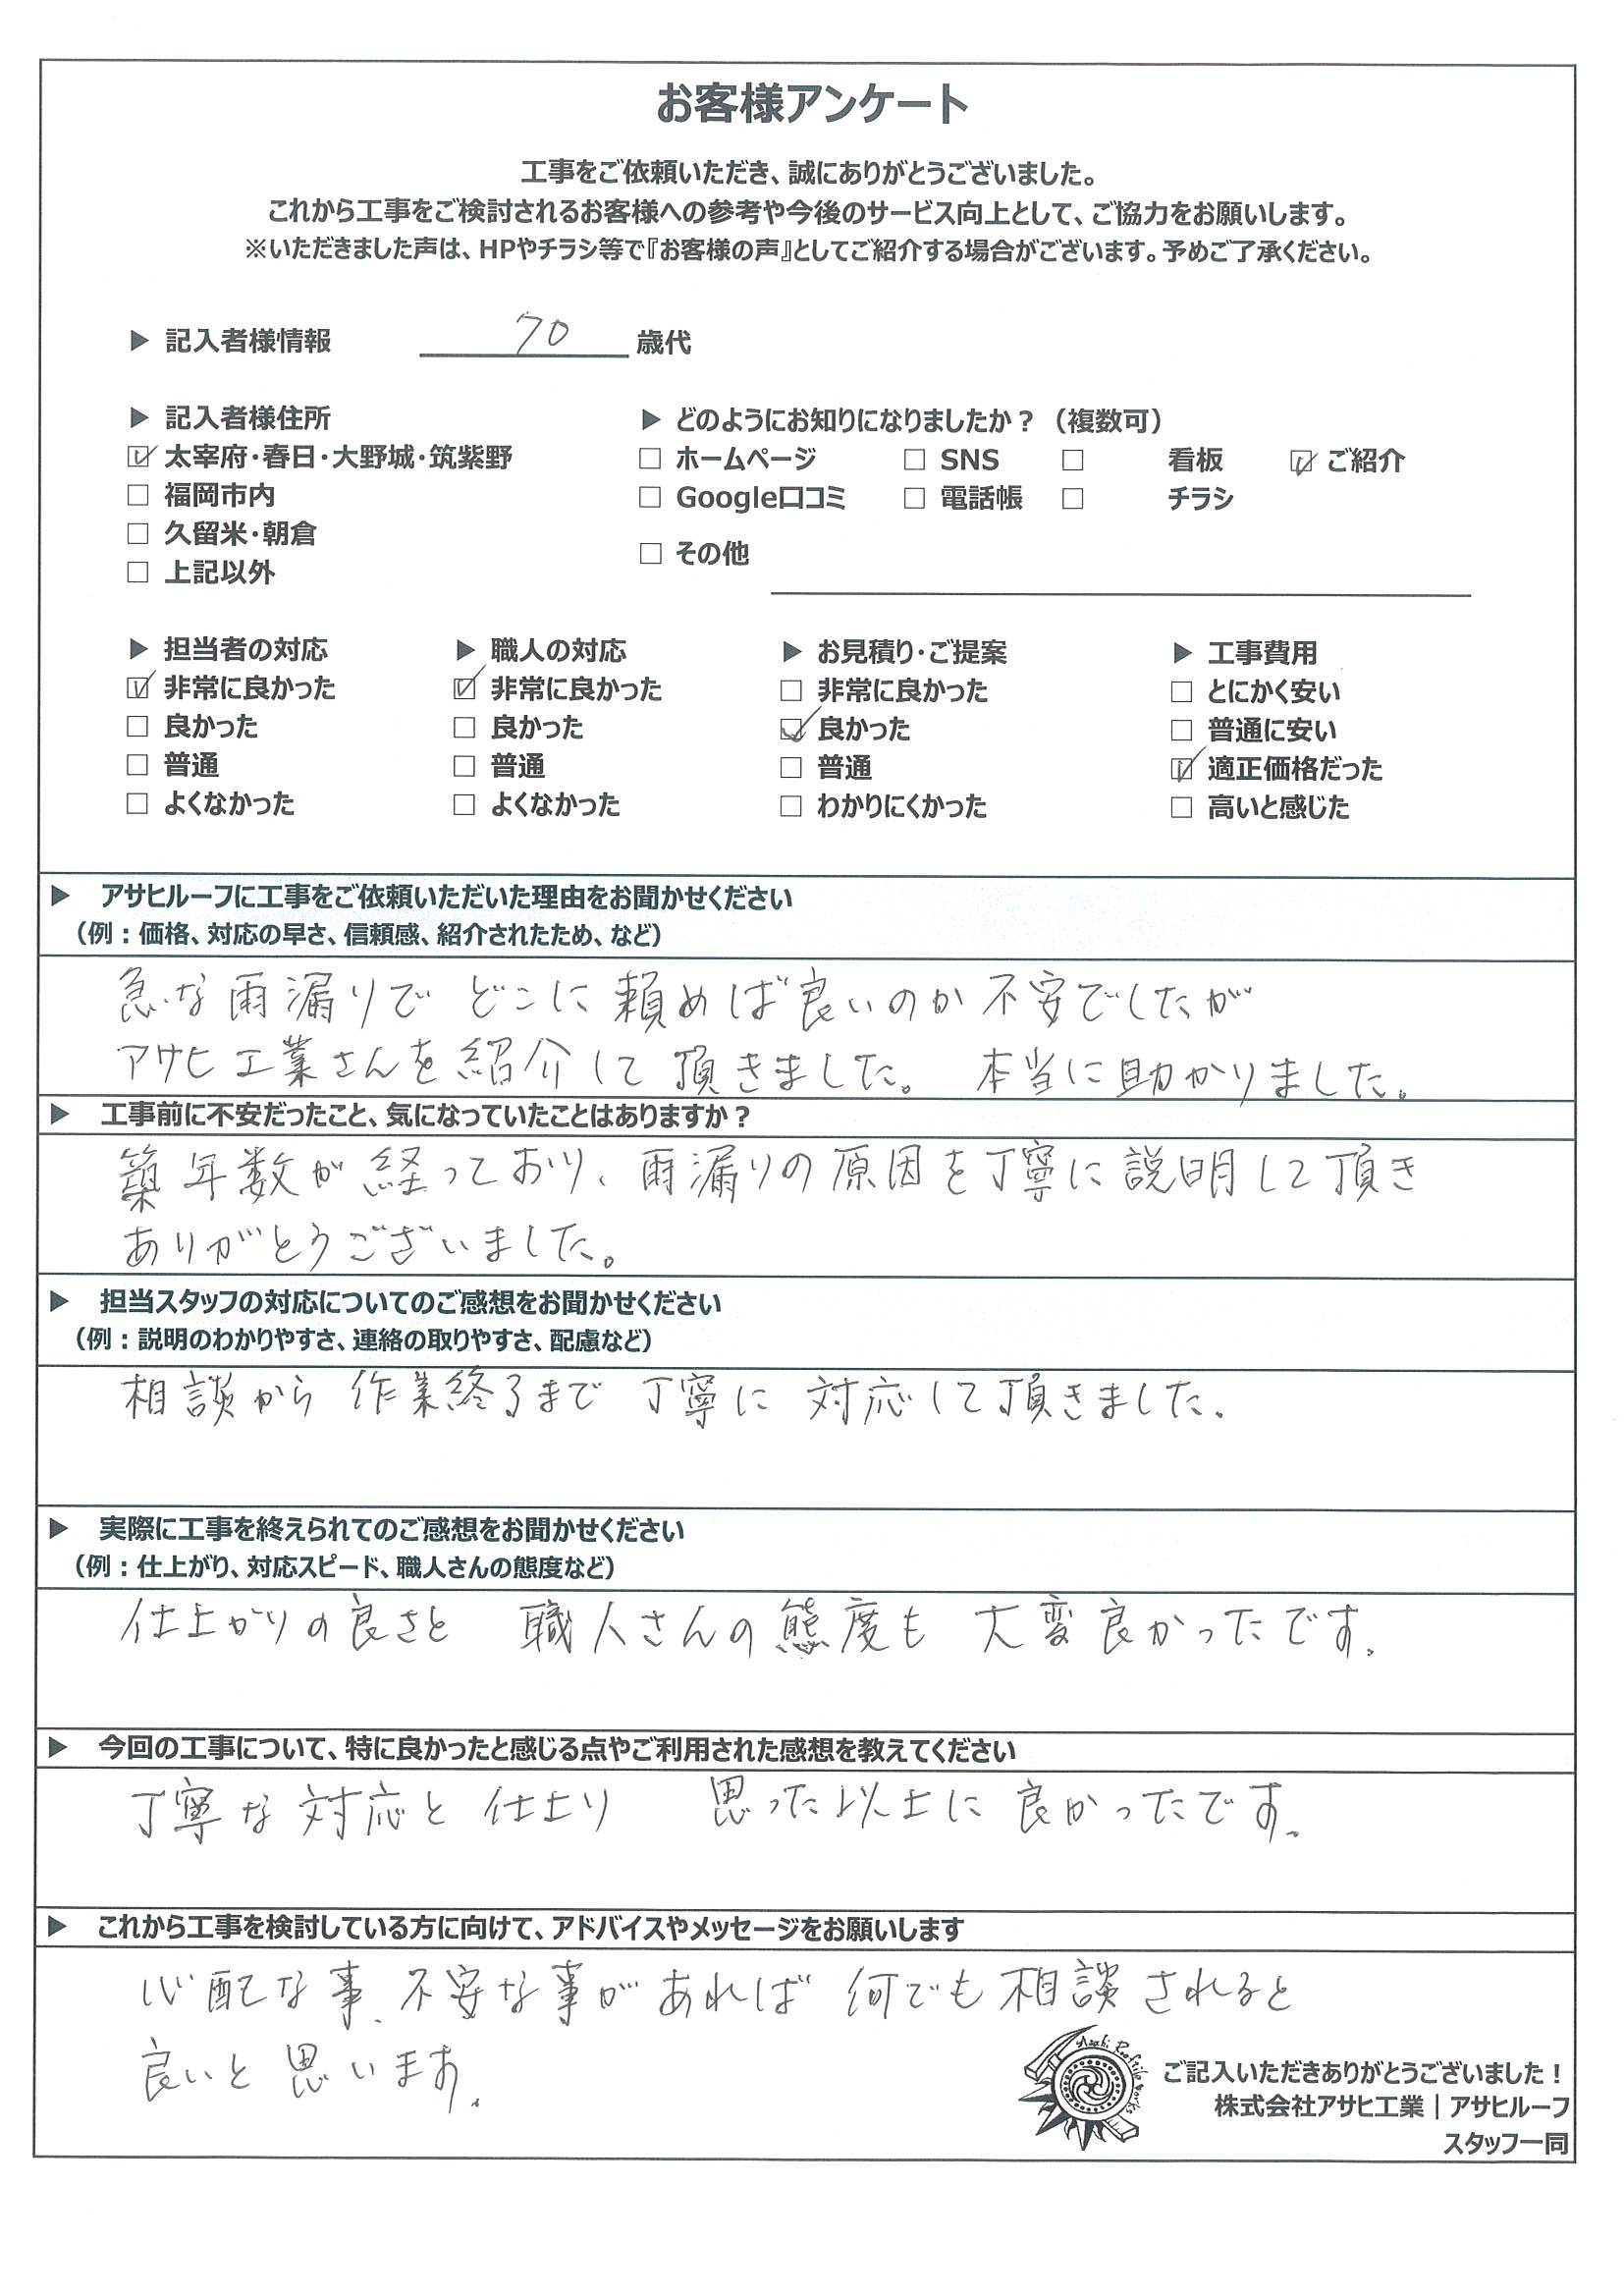 お客様アンケート
工事をご依頼いただき、誠にありがとうございました。
これから工事をご検討されるお客様への参考や今後のサービス向上として、ご協力をお願いします。
※いただきました声は、HPやチラシ等で『お客様の声』としてご紹介する場合がございます。予めご了承ください。
▶ 記入者様情報 70 歳代
▶ 記入者様住所
☑ 太宰府・春日・大野城・筑紫野
☐ 福岡市内
☐ 久留米・朝倉
☐ 上記以外
▶ どのようにお知りになりましたか？（複数可）
☐ ホームページ ☐ SNS ☐ 看板 ☑ ご紹介
☐ Google口コミ ☐ 電話帳 ☐ チラシ
☐ その他
▶ 担当者の対応
☑ 非常に良かった
☐ 良かった
☐ 普通
☐ よくなかった
▶ 職人の対応
☑ 非常に良かった
☐ 良かった
☐ 普通
☐ よくなかった
▶ お見積り・ご提案
☐ 非常に良かった
☑ 良かった
☐ 普通
☐ わかりにくかった
▶ 工事費用
☐ とにかく安い
☐ 普通に安い
☑ 適正価格だった
☐ 高いと感じた
▶ アサヒルーフに工事をご依頼いただいた理由をお聞かせください
（例：価格、対応の早さ、信頼感、紹介されたため、など）
急な雨漏りで どこに頼めば良いのか不安でしたが
アサヒ工業さんを紹介して頂きました。 本当に助かりました。
▶ 工事前に不安だったこと、気になっていたことはありますか？
築年数が経っており、雨漏りの原因を丁寧に説明して頂き
ありがとうございました。
▶ 担当スタッフの対応についてのご感想をお聞かせください
（例：説明のわかりやすさ、連絡の取りやすさ、配慮など）
相談から作業終了まで丁寧に対応して頂きました。
▶ 実際に工事を終えられてのご感想をお聞かせください
（例：仕上がり、対応スピード、職人さんの態度など）
仕上がりの良さと 職人さんの態度も 大変良かったです。
▶ 今回の工事について、特に良かったと感じる点やご利用された感想を教えてください
丁寧な対応と仕上り 思った以上に良かったです。
▶ これから工事を検討している方に向けて、アドバイスやメッセージをお願いします
心配な事、不安な事があれば何でも相談されると
良いと思います。
Asahi Rooftile Works
ご記入いただきありがとうございました！
株式会社アサヒ工業｜アサヒルーフ
スタッフ一同